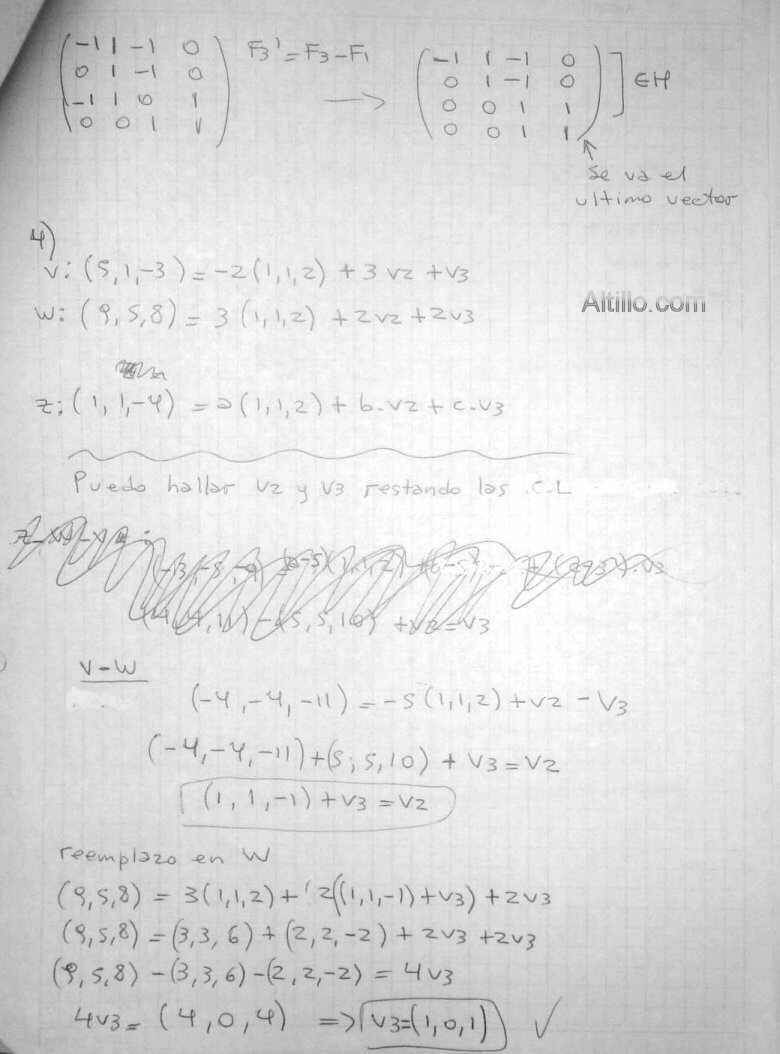 -1 1 -1 0 F3' = F3 - F1 -1 1 -1 0
0 1 -1 0 → 0 1 -1 0 ∈ H
-1 1 0 1 0 0 1 1
0 0 1 1 0 0 1 1
Se va el
ultimo vector
4)
v: (5,1,-3) = -2(1,1,2) + 3 v2 + v3
w: (9,5,8) = 3(1,1,2) + 2v2 + 2v3
Altillo.com
z: (1,1,-4) = a(1,1,2) + b.v2 + c.v3
Puedo hallar v2 y v3 restando las C.L
+v2=v3
v-w
(-4,-4,-11) = -5(1,1,2) + v2 - v3
(-4,-4,-11)+(5,5,10) + v3 = v2
(1,1,-1) + v3 = v2
reemplazo en W
(9,5,8) = 3(1,1,2) + 2((1,1,-1)+v3) + 2v3
(9,5,8) = (3,3,6) + (2,2,-2) + 2v3 + 2v3
(9,5,8) - (3,3,6) - (2,2,-2) = 4v3
4v3 = (4,0,4) => v3=(1,0,1) ✓